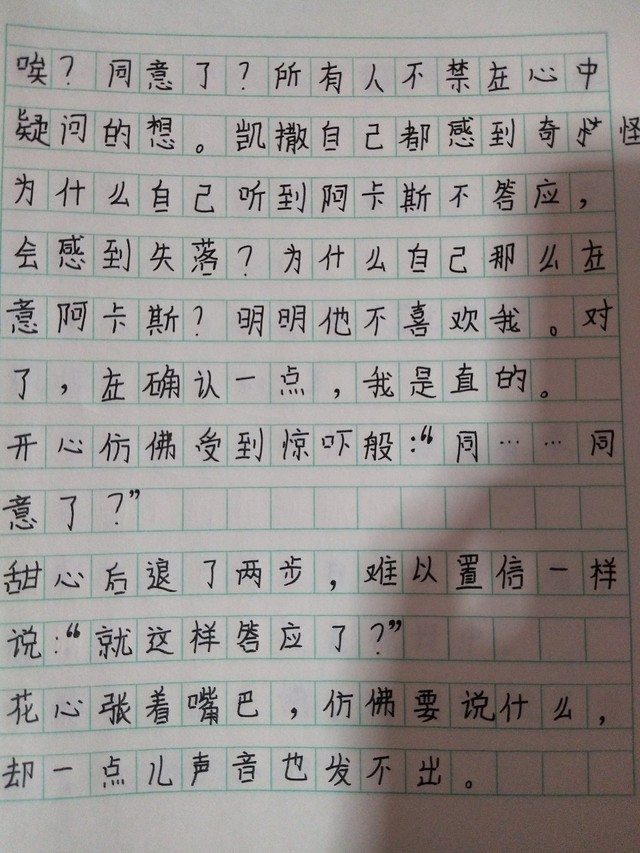 唉？同意了？所有人不禁在心中
疑问的想。凯撒自己都感到奇怪怪
为什么自己听到阿卡斯不答应，
会感到失落？为什么自己那么在
意阿卡斯？明明他不喜欢我。对
了，在确认一点，我是直的。
开心仿佛受到惊吓般：“同……同
意了？”
甜心后退了两步，难以置信一样
说：“就这样答应了？”
花心张着嘴巴，仿佛要说什么，
却一点儿声音也发不出。